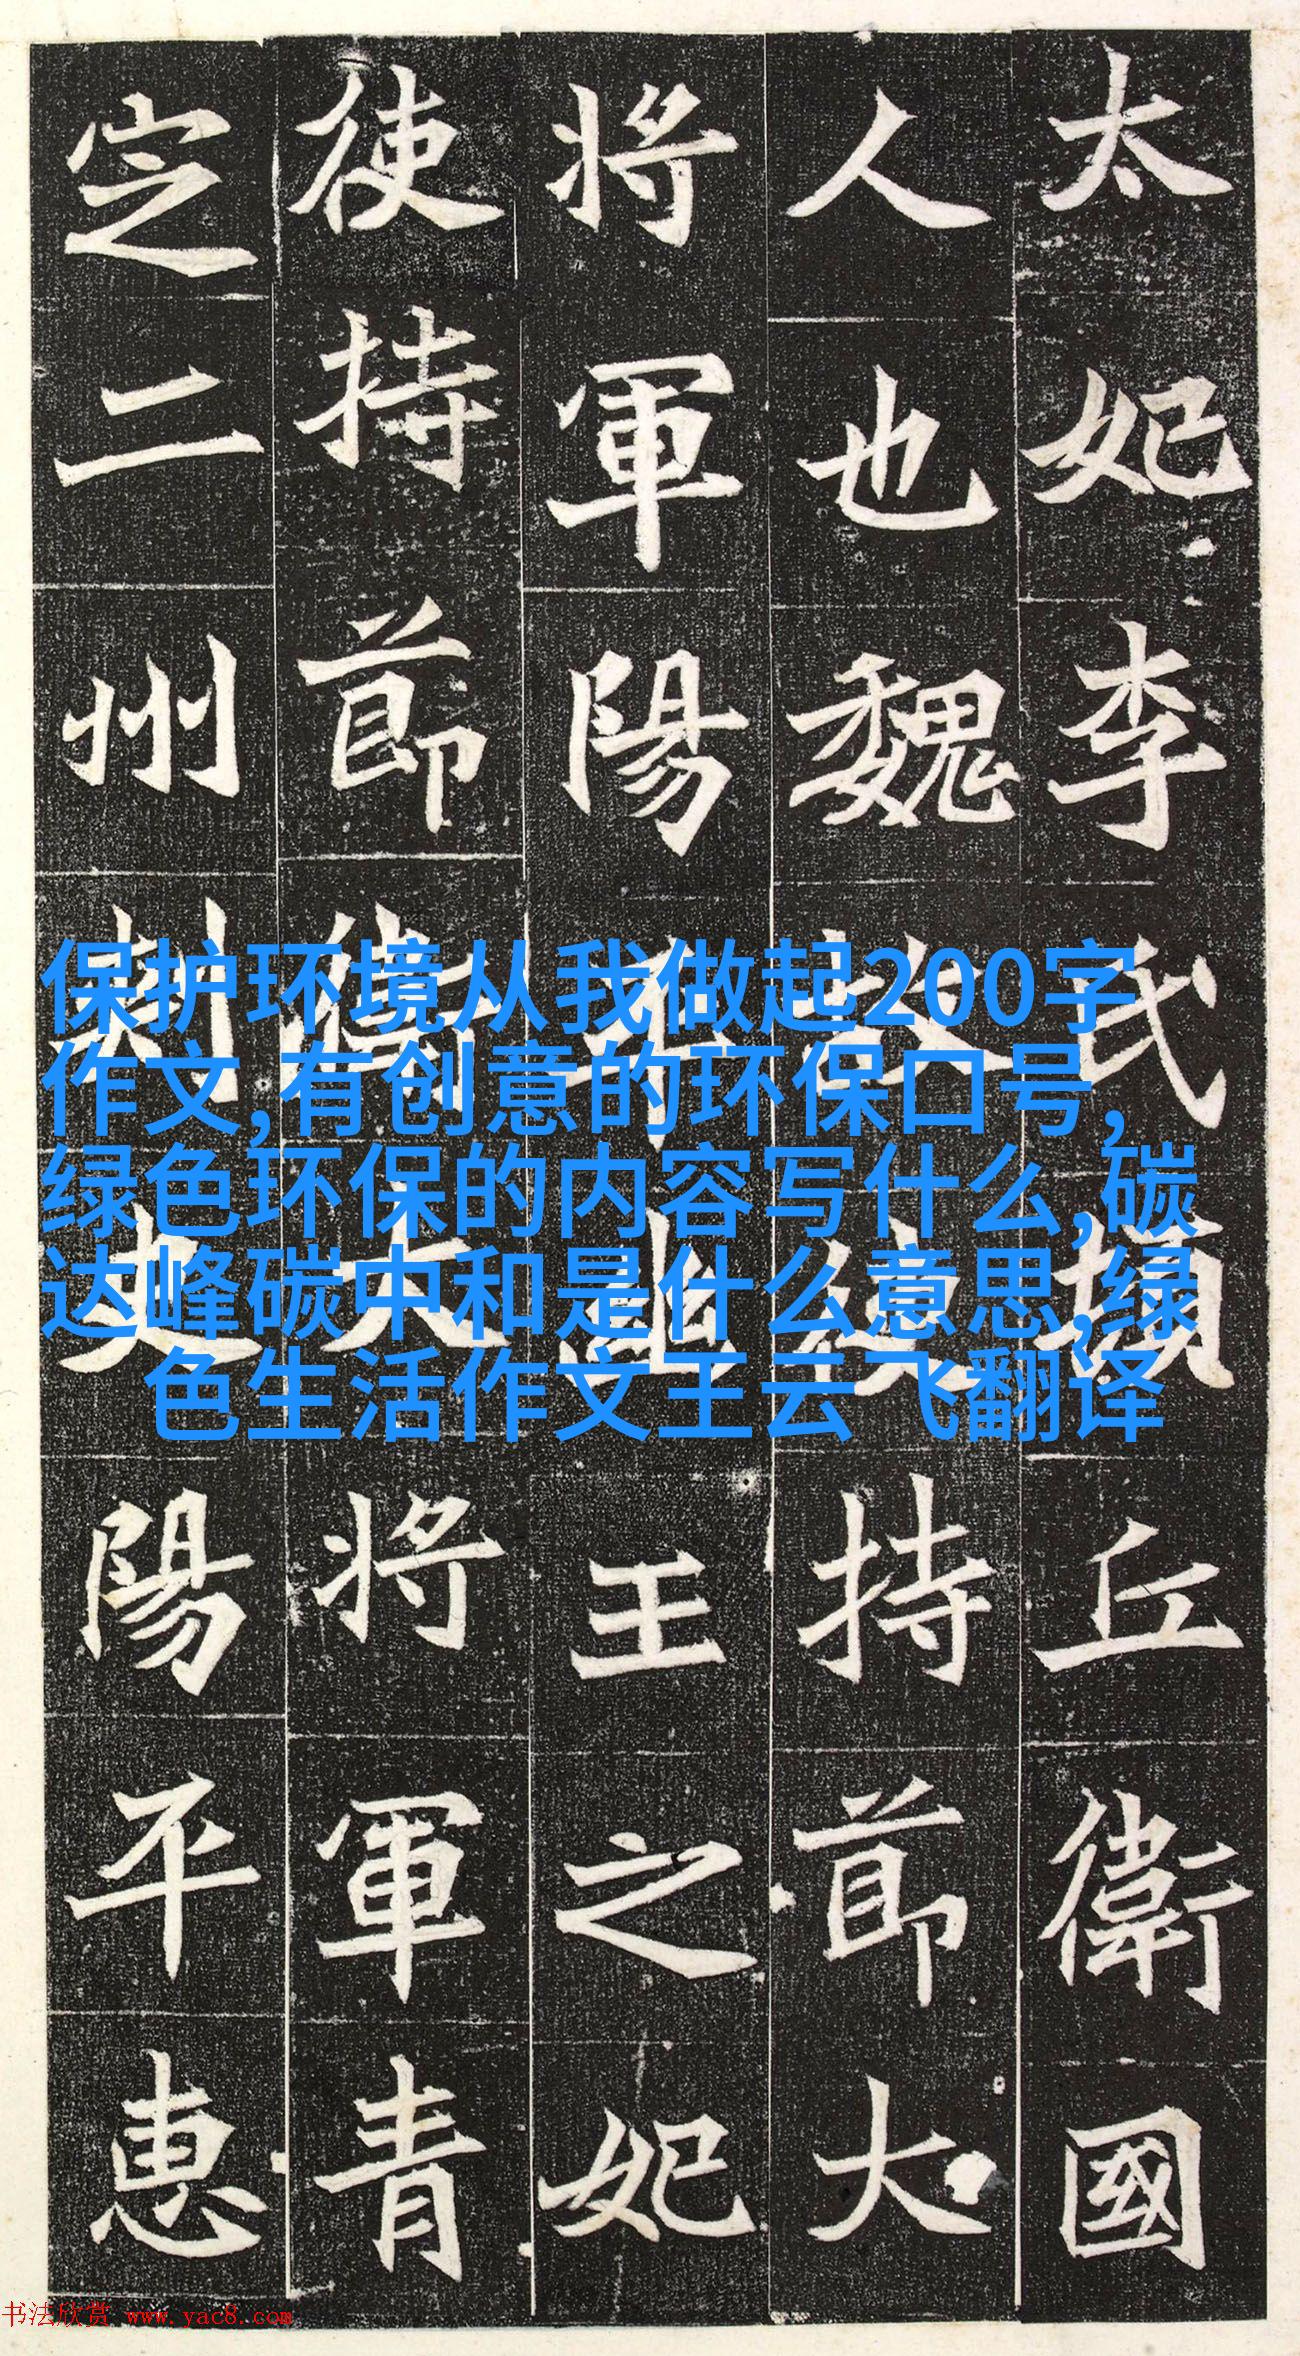 太妃李氏頓丘衛國
人也魏故使持節大
將軍陽平幽王之妃
使持節衛大將軍青
定二州刺史陽平惠
保护环境从我做起200字
作文,有创意的环保口号,
绿色环保的内容写什么,碳
达峰碳中和是什么意思,绿
色生活作文王云飞翻译
书法欣赏 www.yac8.com